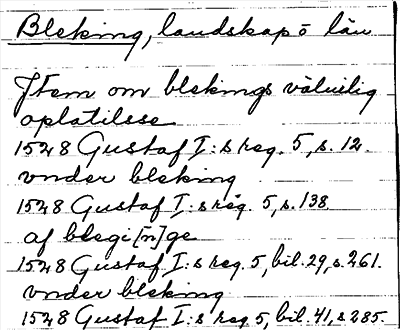 Bleking, landskap o län
Jtem om blekings välvilig
oplatilsse
1528 Gustaf I:s reg. 5, s. 12.
vnder bleking
1528 Gustaf I:s reg. 5, s. 138
af blegi[n]ge
1528 Gustaf I:s reg. 5, bil. 29, s. 261.
vnder bleking
1528 Gustaf I:s reg 5, bil. 41, s 285.